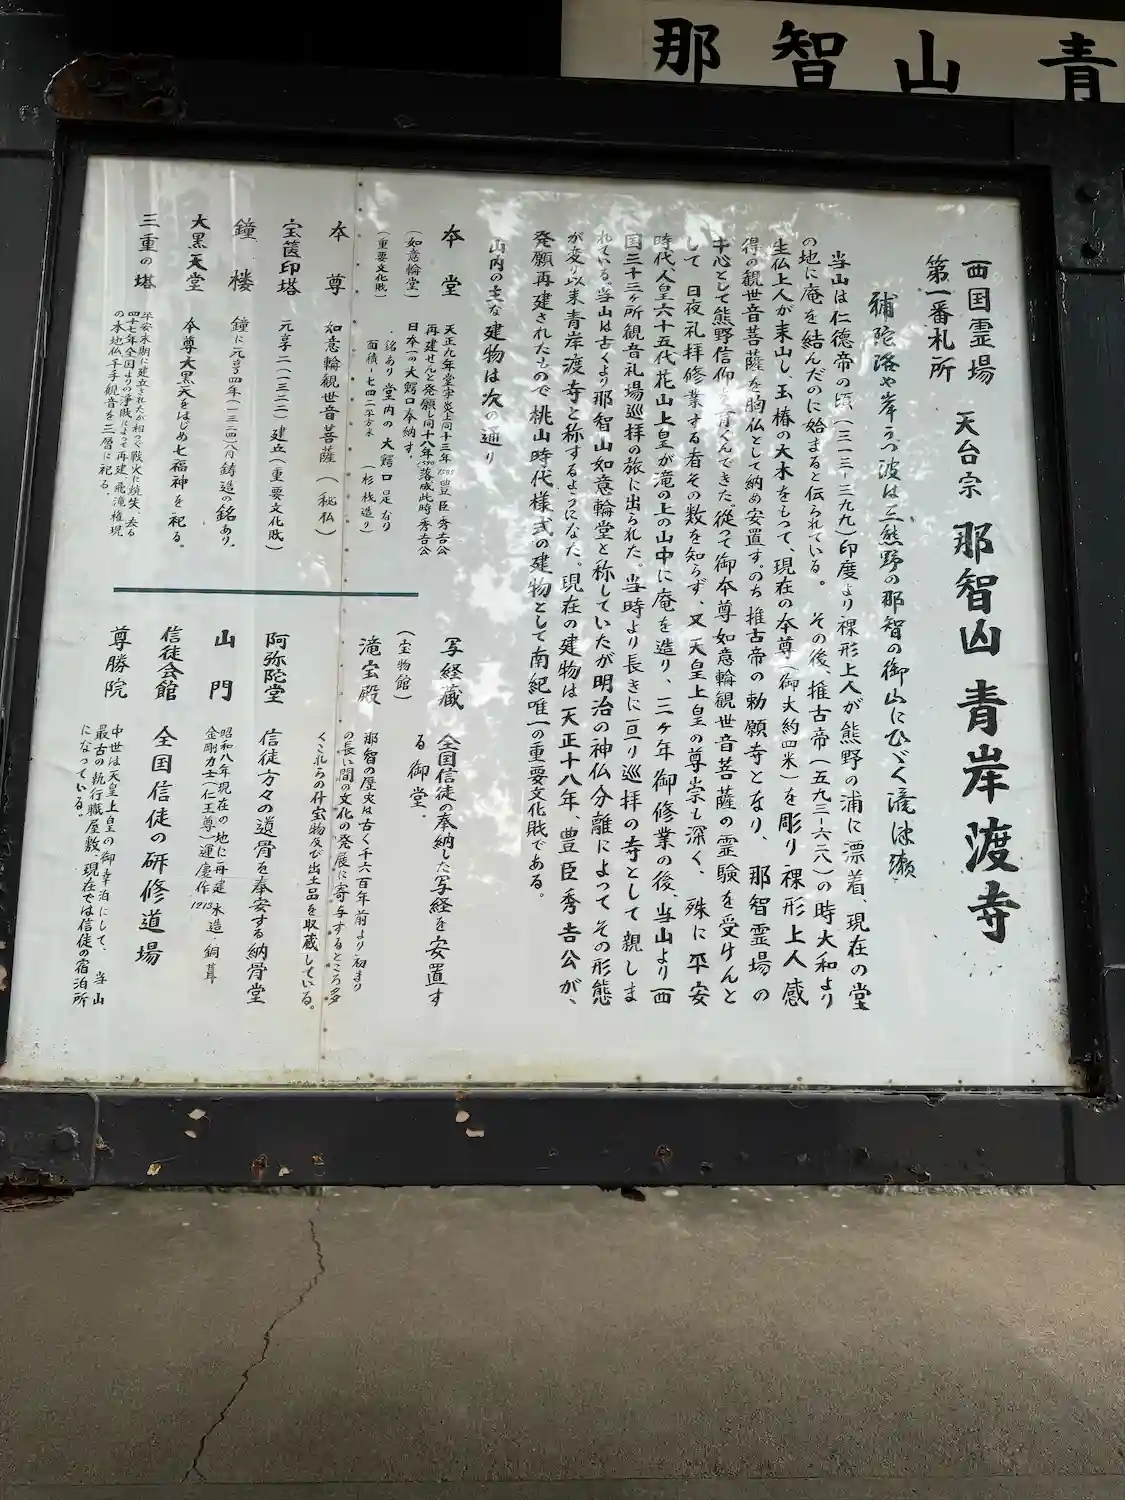 那智山青
西国霊場
第一番札所
天台宗 那智山 青岸渡寺
補陀洛や岸うつ波は三熊野の那智の御山にひゞく滝津瀬
当山は仁徳帝の頃(三一三ー三九九)印度より裸形上人が熊野の浦に漂着、現在の堂
の地に庵を結んだのに始まると伝られている。 その後、推古帝(五九三ー六二八)の時大和より
生仏上人が来山し、玉椿の大木をもって、現在の本尊(御丈約四米)を彫り裸形上人感
得の観世音菩薩を胸仏として納め安置す。のち推古帝の勅願寺となり、那智霊場の
中心として熊野信仰を育くんできた。従って御本尊如意輪観世音菩薩の霊験を受けんと
して 日夜礼拝修業する者その数を知らず、又天皇上皇の尊崇も深く、殊に平安
時代、人皇六十五代花山上皇が滝の上の山中に庵を造り、三ヶ年御修業の後、当山より西
国三十三ヶ所観音礼場巡拝の旅に出られた。当時より長きに亘り巡拝の寺として親しま
れている。当山は古くより那智山如意輪堂と称していたが明治の神仏分離によって その形態
が変り以来青岸渡寺と称するようになった。現在の建物は天正十八年、豊臣秀吉公が、
発願再建されたもので 桃山時代様式の建物として南紀唯一の重要文化財である。
山内の主な建物は次の通り
本堂
(如意輪堂)
(重要文化財)
天正九年堂宇炎上同十三年1585豊臣秀吉公
再建せんと発願し同十八年1590落成此時秀吉公
日本一の大鰐口奉納す。
・銘あり 堂内の大鰐口是なり
面積・七四二平方米 (杉桟造り)
本尊 如意輪観世音菩薩(秘仏)
宝篋印塔 元享二(一三二二)建立(重要文化財)
鐘楼 鐘に元亨四年(一三二四)八月鋳造の銘あり。
大黒天堂 本尊大黒天をはじめ七福神を祀る。
三重の塔
平安末期に建立されたが相つぐ戦火に焼失、去る
四十七年全国よりの浄財によって再建、飛滝権現
の本地仏千手観音を三層に祀る。
写経蔵 全国信徒の奉納した写経を安置す
る御堂。
滝宝殿
(宝物館)
那智の歴史は古く千六百年前より初まり
の長い間の文化の発展に寄与するところ多
くこれらの什宝物及び出土品を収蔵している。
阿弥陀堂 信徒方々の遺骨を奉安する納骨堂
山門
昭和八年現在の地に再建 木造・銅葺
金剛力士(仁王尊)運慶作 1213
信徒会館 全国信徒の研修道場
尊勝院
中世は天皇上皇の御幸泊にして、当山
最古の執行職屋敷、現在では信徒の宿泊所
になっている。